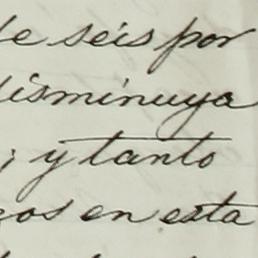 de seis por
disminuya
; y tanto
gos en esta